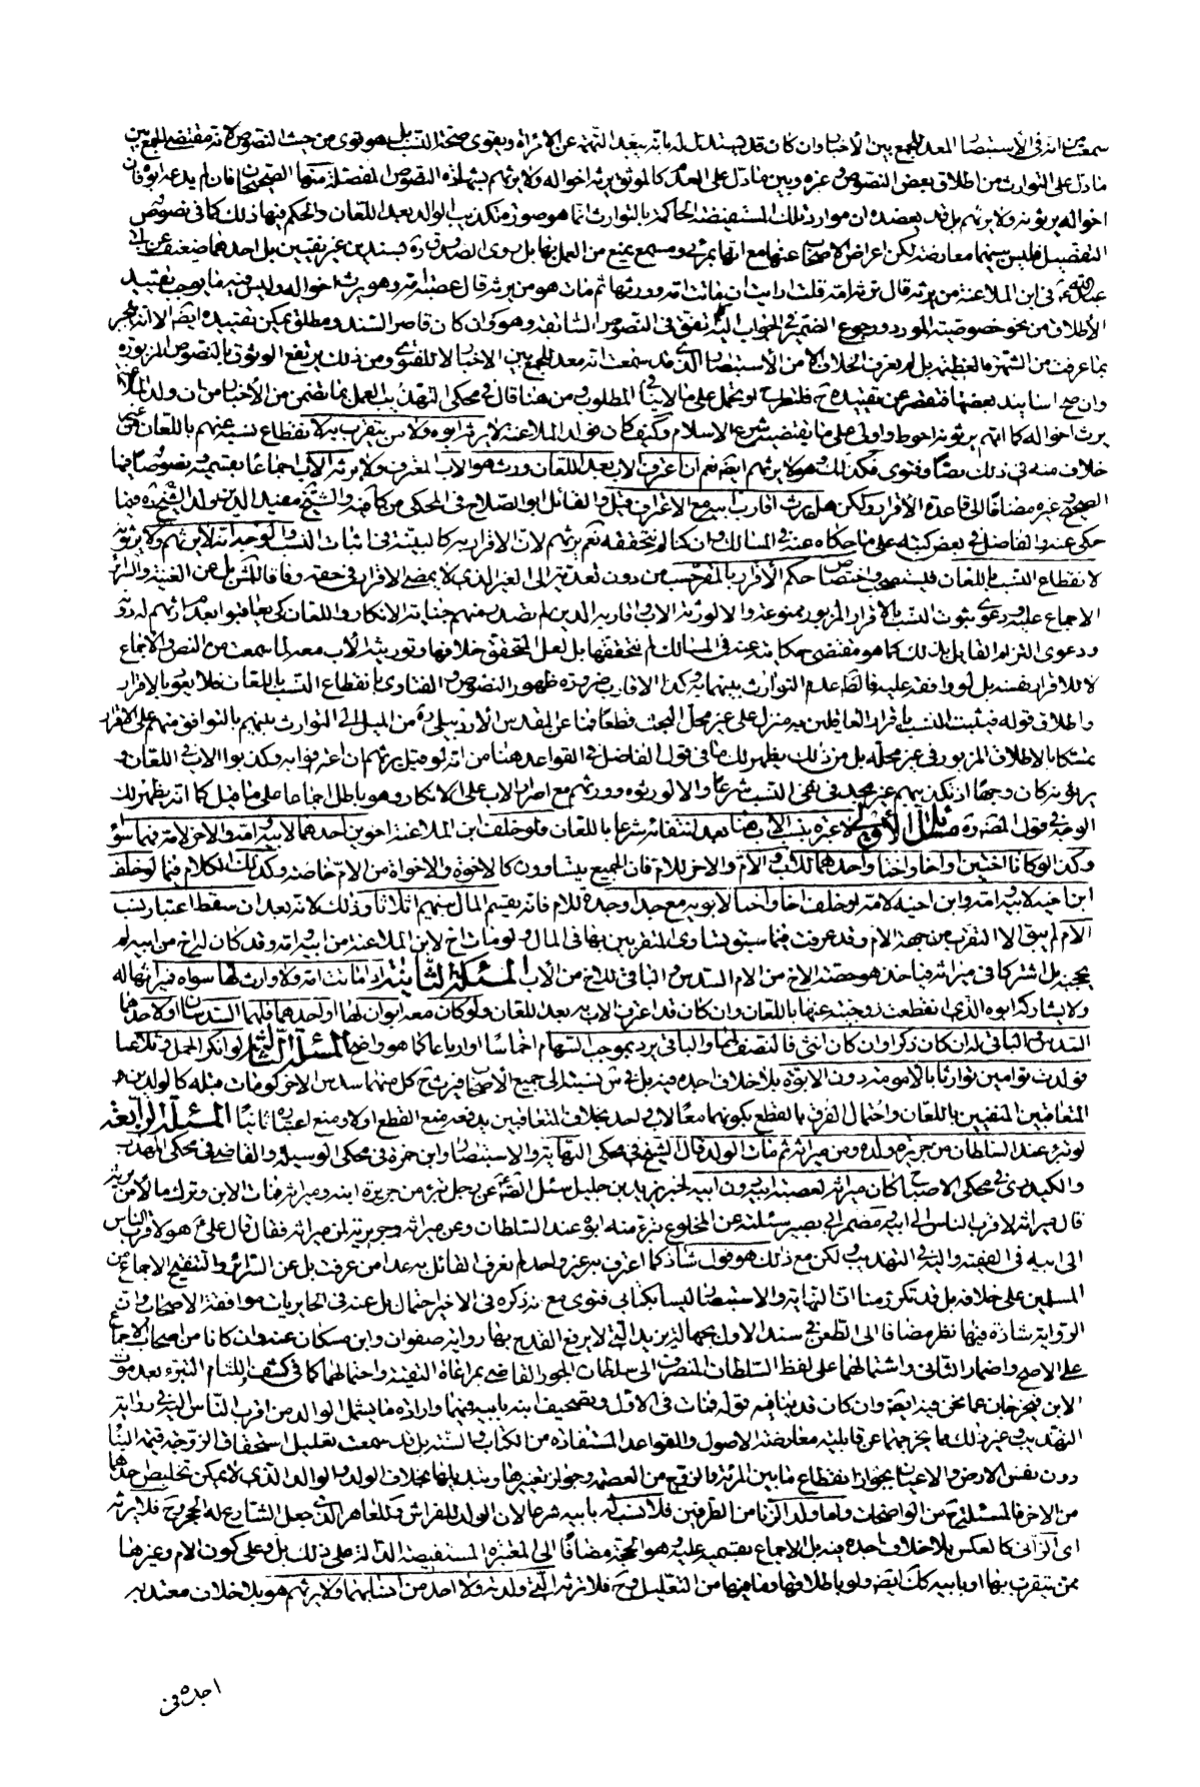 سمعت من انه في الاستبصار المعد للجمع بين الأخبار وان كان قد يستدل له بانه يبعد التهمة عن الامرأة ويقوى صحة النسب بل هو قوى من حيث النصوص لانه مقتضى الجمع بين
ما دل على التوارث من اطلاق بعض النصوص وغيره وبين ما دل على العدم كالموثق يرثه اخواله ولا يرثهم بشهادة النصوص المفصلة منها الصحيحان فان لم يدعه ابوه فان
اخواله يرثونه ولا يرثهم بل قد يعضده ان موارد تلك المستفيضة الحاكمة بالتوارث انما هو صورة تكذيب الوالد بعد اللعان والحكم فيها ذلك كما في نصوص
التفصيل فليس بينهما معارضة لكن اعراض الاصحاب عنها مع انها بمرئى ومسمع يمنع من العمل بها بل روى الصدوق ره بسندين غير نقيين بل احدهما ضعيف عن ابي
عبد الله في ابن الملاعنة من يرثه قال ترثه امه قلت ارايت ان ماتت امه وورثها ثم مات هو من يرثه قال عصبة امه وهو يرث اخواله وليس فيه ما يوجب تقييد
الاطلاق من نحو خصوصية المورد ورجوع الضمير في الجواب اليه تتفق في النصوص السابقة وهو وان كان قاصر السند ومطلق يمكن تقييده ايضا الا انه منجبر
بما عرفت من الشهرة العظيمة بل لم يعرف الخلاف الا من الاستبصار الذي قد سمعت انه معد للجمع بين الاخبار لا للفتوى ومن ذلك يرتفع الوثوق بالنصوص المزبورة
وان صح اسانيد بعضها فتقصر عن تقييده ح فلتطرح او تحمل على ما لا ينافي المطلوب ومن هنا قال في محكى التهذيب العمل بما تضمن من الأخبار من ان ولد الملاعنة
يرث اخواله كما انهم يرثونه احوط واولى على ما يقتضيه شرع الاسلام وكيف كان فولد الملاعنة لا يرثه ابوه ولا من يتقرب به لانقطاع نسبه عنهم باللعان من غير
خلاف منه في ذلك نصا وفتوى فكذلك هو لا يرثهم ايضا نعم ان اعترف الاب بعد اللعان ورث هو الاب المعترف ولا يرثه الاب اجماعا بقسميه ونصوصا فيها
الصحيح وغيره مضافا الى قاعدة الأقرار ولكن هل يرث اقارب ابيه مع الاعتراف قيل والقائل ابو الصلاح في المحكى من كافيه والشيخ مفيد الدين ولد الشيخ ره فيما
حكى عنه والفاضل في بعض كتبه على ما حكاه عنه في المسالك وان كنا لم نتحققه نعم يرثهم لان الاقرار به كالبينة في اثبات النسب والوجه انه لا يرثهم ولا يرثونه
لانقطاع النسب باللعان فيستصحب واختصاص حكم الأقرار بالمقر حسب من دون تعديته الى الغير الذي لا يمضى الاقرار في حقه وفاقا للمشهور بل عن الغنية والسرائر
الاجماع عليه ودعوى ثبوت النسب بالاقرار المزبور ممنوعة والا لورثه الاب واقاربه الذين لم تصدر منهم جناية الانكار واللعان
ودعوى التزام القائل بذلك كما هو مقتضى حكايته عنه في المسالك لم نتحققها بل لعل المتحقق خلافها وتوريث الأب معه لما سمعت من النص والاجماع
لا للاقرار نفسه بل لو وافقه عليه فالظاهر عدم التوارث بينهما به وكذا الاقارب ضرورة ظهور النصوص والفتاوى بانقطاع النسب باللعان فلا يعود بالاقرار
واطلاق قوله فيثبت النسب باقرار العاقلين به منزل على غير محل البحث قطعا فما عن المقدس الأردبيلي ره من الميل الى التوارث بينهم بالتوافق منهم على الاقرار
تمسكا بالاطلاق المزبور في غير محله بل من ذلك يظهر لك ما في قول الفاضل في القواعد هنا من انه لو قيل يرثهم ان اعترفوا به وكذبوا الاب في اللعان و
يرثونه كان وجها اذ تكذيبهم غير مجد في نفي النسب شرعا والا لورثوه وورثهم مع اصرار الاب على الانكار وهو باطل اجماعا على ما قيل كما انه يظهر لك
الوجه في قول المص ره مسائل الأولى لا عبرة بنسب الاب هنا بعد انتفائه شرعا باللعان فلو خلف ابن الملاعنة اخوين احدهما لابيه وامه والاخر لامه فهما سواء
وكذا لو كانا اختين او اخا واختا واحدهما للاب والام والاخر للام فان الجميع يتساوون كالاخوة والاخوات من الام خاصة وكذلك الكلام فيما لو خلف
ابن اخيه لابيه وامه وابن اخيه لامه او خلف اخا واختا لابويه مع جد او جدة للام فانه يقسم المال بينهم اثلاثا وذلك لانه بعد ان سقط اعتبار نسب
الاب لم يبق الا التقرب من جهة الام وقد عرفت فيما سبق تساوى المتقربين بها في المال ولو مات اخ لابن الملاعنة من ابيه وامه وقد كان له اخ من ابيه لم
يحجبه بل اشتركا في ميراثه فيأخذ هو حصة الاخ من الام السدس والباقي للاخ من الأب المسئلة الثانية اذا ماتت امه ولا وارث لها سواه فميراثها له
ولا يشاركه ابوه الذي انقطعت زوجيته عنها باللعان وان كان قد اعترف الاب به بعد اللعان ولو كان معه ابوان لها او احدهما فلهما السدسان او لاحدهما
السدس والباقي له ان كان ذكرا وان كان انثى فالنصف لها والباقي يرد بموجب السهام اخماسا او ارباعا كما هو واضح المسئلة الثالثة لو انكر الحمل وتلاعنا
فولدت توامين توارثا بالامومة دون الابوة بلا خلاف اجده فيه بل في ش نسبته الى جميع الأصحاب فيرث ح كل منهما سدس الاخر لو مات مثله كالولدين
المتعاقبين المنفيين باللعان واحتمال الفرق بالقطع بكونهما معا لاب واحد بخلاف المتعاقبين يدفعه منع القطع اولا ومنع اعتباره ثانيا المسئلة الرابعة
لو تبرء عند السلطان من جريرة ولده ومن ميراثه ثم مات الولد قال الشيخ في محكى النهاية والاستبصار وابن حمزة في محكى الوسيلة والقاضي في محكى المهذب
والكيدري في محكى الاصباح كان ميراثه لعصبة ابيه دون ابيه لخبر يزيد بن خليل سئل الصادق عن رجل تبرء من جريرة ابنه وميراثه فمات الابن وترك مالا من يرثه
قال ميراثه لاقرب الناس الى ابيه ومضمر ابي بصير سئلته عن المخلوع تبرء منه ابوه عند السلطان وعن ميراثه وجريرته لمن ميراثه فقال قال علي ع هو لاقرب الناس
الى ابيه في الفقيه والي في التهذيب ولكن مع ذلك هو قول شاذ كما اعترف به غير واحد لم يعرف القائل به عدا من عرفت بل عن السرائر والتنقيح الاجماع من
المسلمين على خلافه بل قد تكرر منا ان النهاية والاستبصار ليسا بكتابي فتوى مع تردده في الاخير احتمال بل عنه في الحايريات موافقة الاصحاب وان
الرواية شاذة فيها نظر مضافا الى الطعن في سند الاول بجهالة يزيد التي لا يرفع القدح بها رواية صفوان وابن مسكان عنه وان كانا من اصحاب الاجماع
على الاصح واضمار الثاني واشتمالهما على لفظ السلطان المنصرف الى سلطان الجور القاضي بمراعاة التقية واحتمالهما كما في كشف اللثام التبرء بعد موت
الابن فيخرجان عما نحن فيه ايضا وان كان قد ينافيه قوله فمات في الاول وتصحيف ابنه بابيه فيهما وارادة ما يشمل الوالد من اقرب الناس اليه في رواية
التهذيب وغير ذلك مما يخرجهما عن قابلية معارضة الاصول والقواعد المستفادة من الكتاب والسنة بل قد سمعت تعليل استحقاق الزوجة قيمة البناء
دون نفس الارض والاعيان بجواز انقطاع ما بين المرئة والزوج من العصمة وجواز تغييرها وتبديلها بخلاف الولد والوالد الذي لا يمكن تخليص احدهما
من الاخر فالمسئلة ح من الواضحات واما ولد الزنا من الطرفين فلا نسب له بابيه شرعا لان الولد للفراش وللعاهر الذي جعل الشارع له الحجر فح فلا يرثه
اى الزاني كالعكس بلا خلاف اجده فيه بل الاجماع بقسميه عليه وهو الحجة مضافا الى المعتبرة المستفيضة الدالة على ذلك بل وعلى كون الام وغيرها
ممن يتقرب بها او بابيه كك ايضا ولو باطلاقها وما فيها من التعليل وح فلا ترثه التي ولدته ولا احد من انسابهما ولا يرثهم هو بلا خلاف معتد به
اجده في